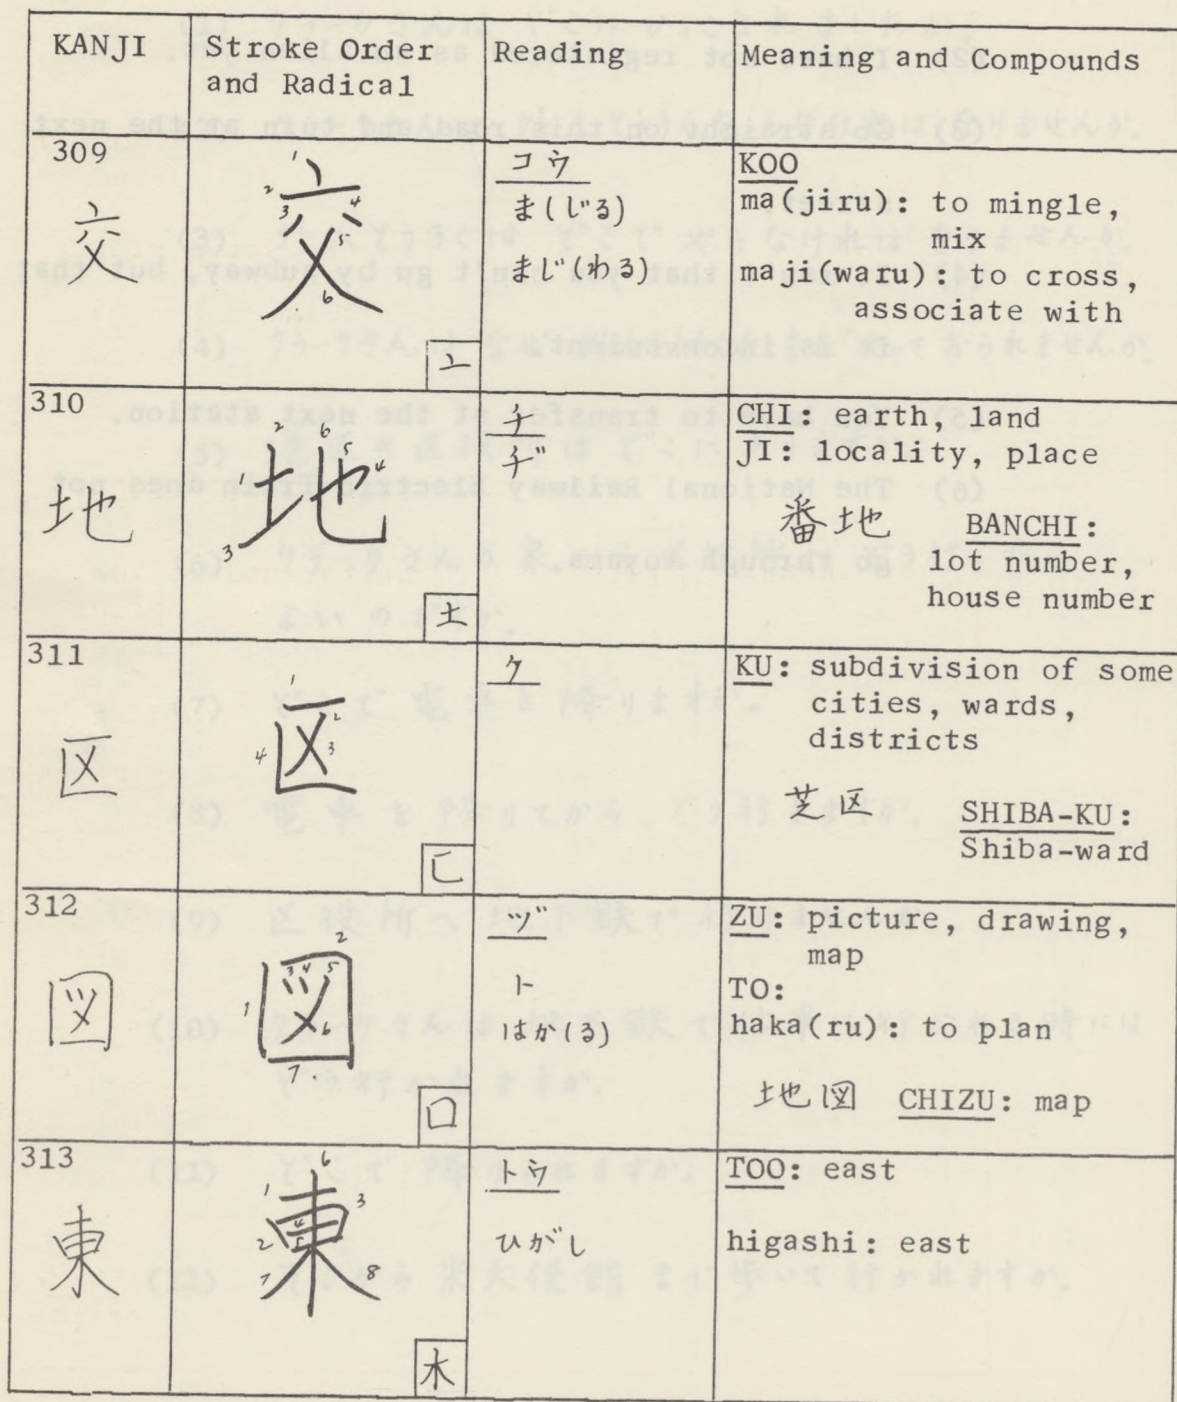 KANJI
Stroke Order
and Radical
Reading
Meaning and Compounds
309
交
1 2 3 4 5 6
交
亠
コウ
ま(じる)
まじ(わる)
KOO
ma(jiru): to mingle,
mix
maji(waru): to cross,
associate with
310
地
1 2 3 4 5 6
地
土
チ
ヂ
CHI: earth, land
JI: locality, place
番地 BANCHI:
lot number,
house number
311
区
1 2 3 4
区
匚
ク
KU: subdivision of some
cities, wards,
districts
芝区 SHIBA-KU:
Shiba-ward
312
図
1 2 3 4 5 6 7
図
囗
ヅ
ト
はか(る)
ZU: picture, drawing,
map
TO:
haka(ru): to plan
地図 CHIZU: map
313
東
1 2 3 4 5 6 7 8
東
木
トウ
ひがし
TOO: east
higashi: east